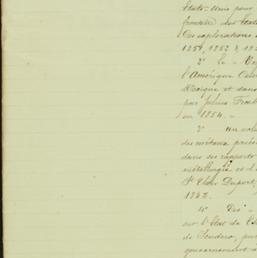 États-Unis pour
frontière des États
Des explorations
1851, 1852 &
2° le
l'Amérique
Mexique et dans
par Julius Froeb
en 1854.
3° un vol
des métaux préci
dans ses rapports
métallurgie et
St Clair Duport,
1843.
4° Des
sur l'État de
de Sonora, pu
gouvernement